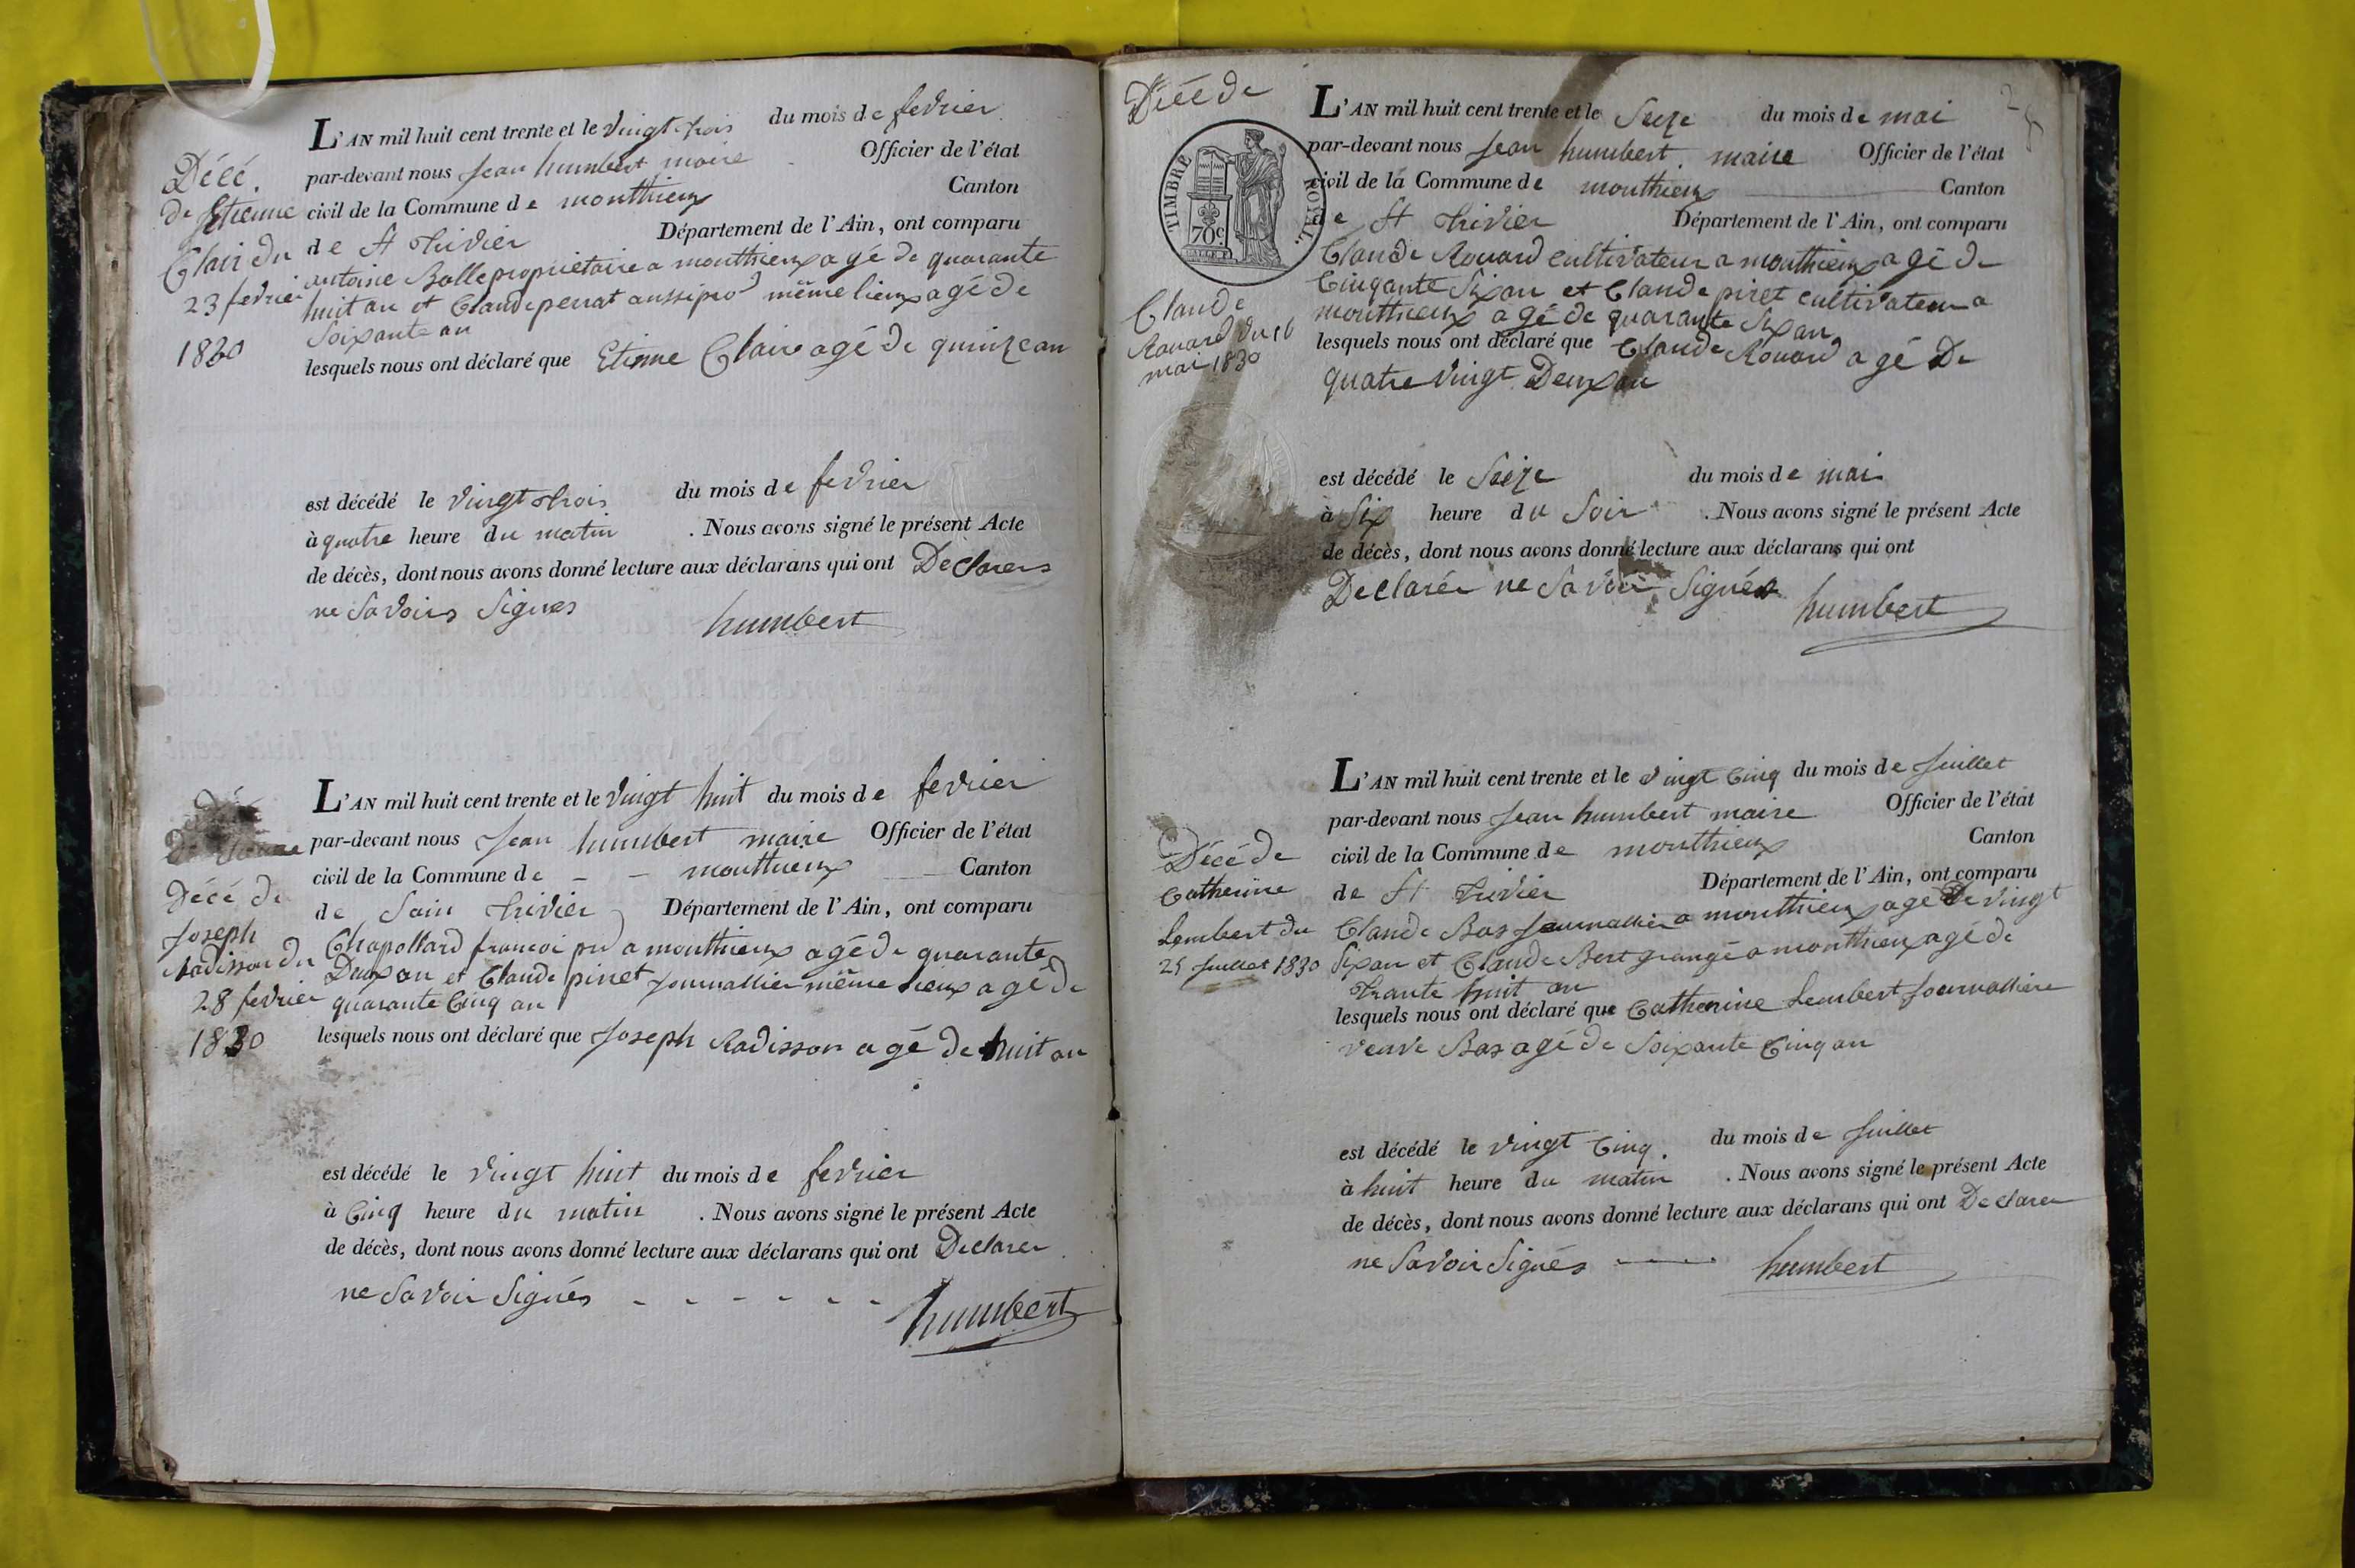 L'AN mil huit cent trente et le vingt trois du mois de fevrier
par-devant nous Jean humbert maire Officier de l'état
civil de la Commune de monthieux Canton
de St Trivier Département de l'Ain, ont comparu
antoine Bolle propriétaire a monthieux agé de quarante
huit an et Claude perrat aussi pro même lieux agé de
Soixante an
lesquels nous ont déclaré que Etienne Clair agé de quinze an
est décédé le vingt trois du mois de fevrier
à quatre heure du matin . Nous avons signé le présent Acte
de décès, dont nous avons donné lecture aux déclarans qui ont Declarers
ne Savoirs Signes
humbert
Décé.
de Etienne
Clair du
23 fevrier
1830
L'AN mil huit cent trente et le vingt huit du mois de fevrier
par-devant nous Jean humbert maire Officier de l'état
civil de la Commune de - - monthieux Canton
de Sain Trivier Département de l'Ain, ont comparu
Chapollard francoi prd a monthieux agé de quarante
Deux an et Claude pinet Journallier même lieux agé de
quarante Cinq an
lesquels nous ont déclaré que Joseph Radisson agé de huit an
est décédé le vingt huit du mois de fevrier
à Cinq heure du matin . Nous avons signé le présent Acte
de décès, dont nous avons donné lecture aux déclarans qui ont Declarer
ne Savoir Signés - - - - - -
humbert
Décé de
Joseph
Radisson du
28 fevrier
1830
Décé de
TIMBRE ROYAL.
70c
Claude
Rouard du 16
mai 1830
L'AN mil huit cent trente et le Seize du mois de mai
par-devant nous Jean humbert. maire Officier de l'état
civil de la Commune de monthieux Canton
de St Trivier Département de l'Ain, ont comparu
Claude Rouard cultivateur a monthieux agé de
Cinqante Six an et Claude piret cultivateur a
monthieux agé de quarante Six an
lesquels nous ont déclaré que Claude Rouard agé De
quatre vingt Deux an
est décédé le Seize du mois de mai
à Six heure du Soir . Nous avons signé le présent Acte
de décès, dont nous avons donné lecture aux déclarans qui ont
Declarér ne Savoir Signés
humbert
L'AN mil huit cent trente et le vingt Cinq du mois de Juillet
par-devant nous Jean humbert maire Officier de l'état
civil de la Commune de monthieux Canton
de St Trivier Département de l'Ain, ont comparu
Claude Bas Journallier a monthieux agé De vingt
Six an et Claude Bert grangé a monthieux agé de
trante huit an
lesquels nous ont déclaré que Catherine Lembert Journallière
veuve Bas agé de Soixante Cinq an
est décédé le vingt Cinq. du mois de Juillet
à huit heure du matin . Nous avons signé le présent Acte
de décès, dont nous avons donné lecture aux déclarans qui ont Declarer
ne Savoir Signés
humbert
Décé de
Catherine
Lembert du
25 Juillet 1830